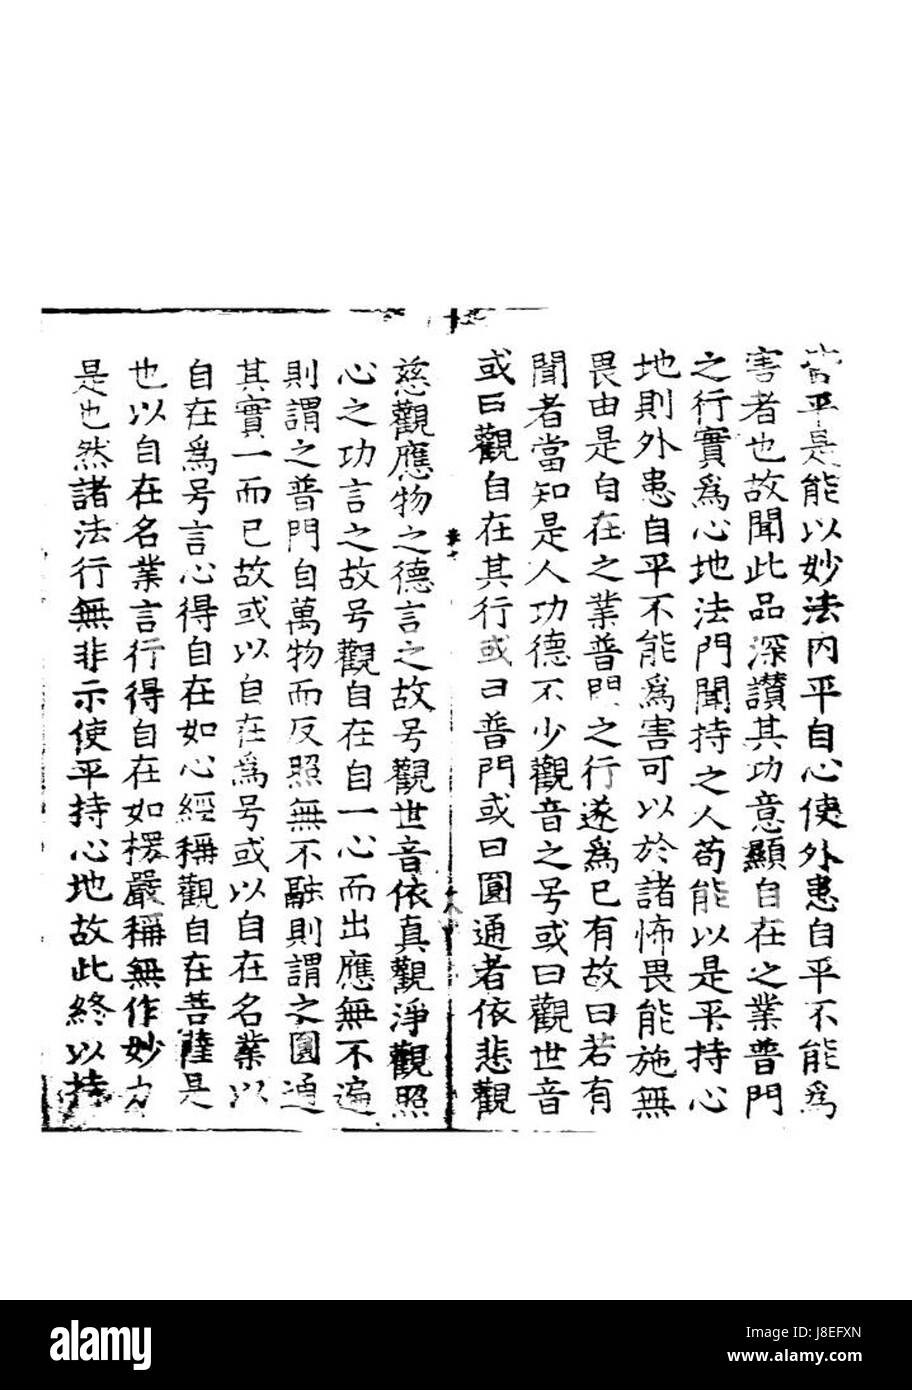 當平是能以妙法內平自心使外患自平不能爲
害者也故聞此品深讃其功意顯自在之業普門
之行實爲心地法門聞持之人苟能以是平持心
地則外患自平不能爲害可以於諸怖畏能施無
畏由是自在之業普門之行遂爲已有故曰若有
聞者當知是人功德不少觀音之号或曰觀世音
或曰觀自在其行或曰普門或曰圓通者依悲觀
慈觀應物之德言之故号觀世音依真觀淨觀照
心之功言之故号觀自在自一心而出應無不遍
則謂之普門自萬物而反照無不融則謂之圓通
其實一而已故或以自在爲号或以自在名業以
自在爲号言心得自在如心經稱觀自在菩薩是
也以自在名業言行得自在如楞嚴稱無作妙力
是也然諸法行無非示使平持心地故此終以持
alamy
Image ID: J8EFXN
www.alamy.com